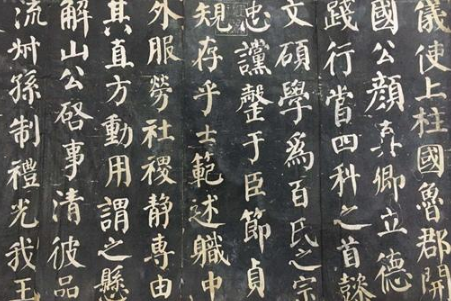 儀使上柱國魯郡開
國公顏真卿立德
踐行當四科之首懿
文碩學爲百氏之宗
忠讜罄于臣節貞
規存乎士範述職中
外服勞社稷靜專由
其直方動用謂之懸
解山公啓事清彼品
流叔孫制禮光我王